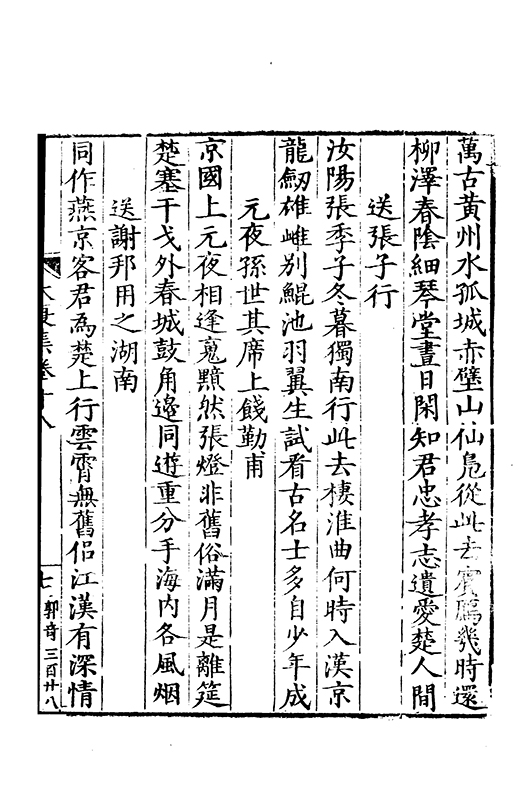 萬古黃州水孤城赤壁山仙凫從此去賓鴈幾時還
柳澤春陰細琴堂晝日閑知君忠孝志遺愛楚人間
送張子行
汝陽張季子冬暮獨南行此去棲淮曲何時入漢京
龍劒雄雌別鯤池羽翼生試看古名士多自少年成
元夜孫世其席上餞勤甫
京國上元夜相逢䰟黯然張燈非舊俗滿月是離筵
楚塞干戈外春城鼓角邉同遊重分手海内各風烟
送謝邦用之湖南
同作燕京客君爲楚上行雲霄無舊侣江漢有深情
大復集卷十八
七
郭奇
三百廿八